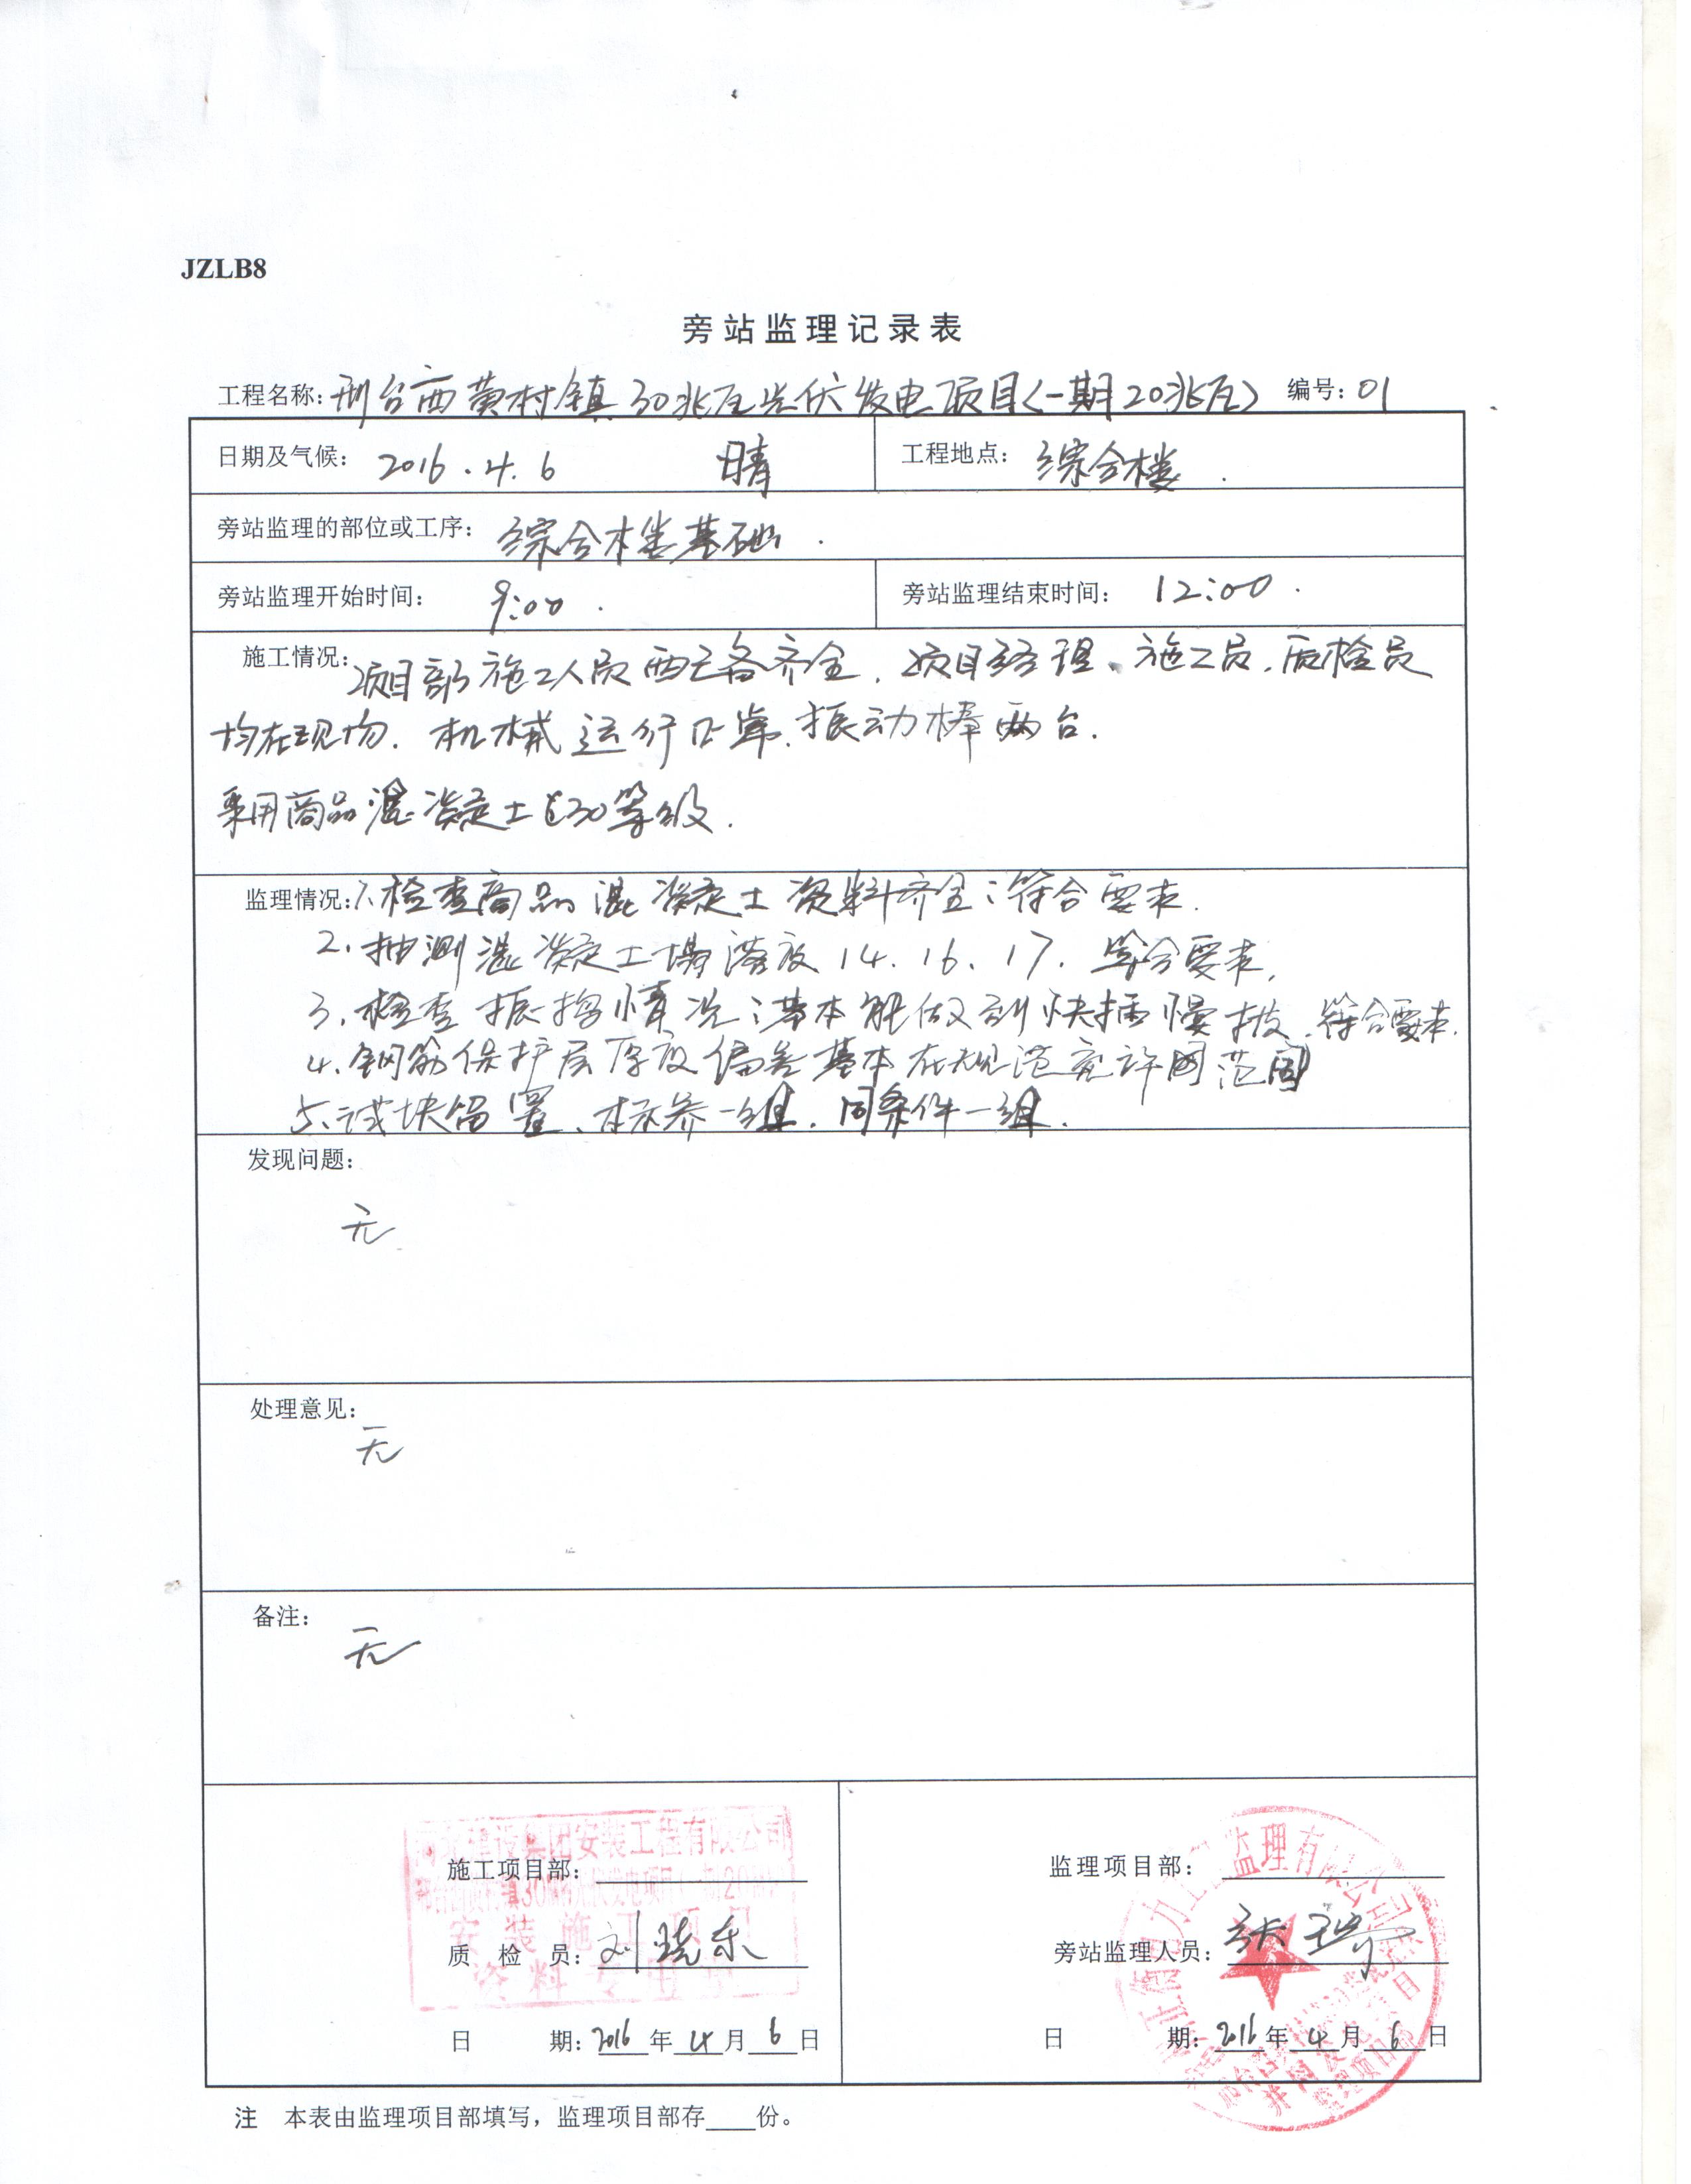 JZLB8
旁站监理记录表
工程名称:邢台西黄村镇30兆瓦光伏发电项目(一期20兆瓦) 编号:01
日期及气候: 2016.4.6 晴 工程地点: 综合楼.
旁站监理的部位或工序: 综合楼基础.
旁站监理开始时间: 9:00. 旁站监理结束时间: 12:00.
施工情况:项目部施工人员配备齐全.项目经理、施工员.质检员
均在现场.机械运行正常.振动棒两台.
采用商品混凝土C30等级.
监理情况:1.检查商品混凝土资料齐全;符合要求.
2.抽测混凝土塌落度14.16.17.符合要求.
3.检查振捣情况;基本能做到快插慢拔.符合要求.
4.钢筋保护层厚度偏差基本在规范允许范围
5.试块留置、标养一组.同条件一组.
发现问题:
无
处理意见:
无
备注:
无
河北建设集团安装工程有限公司
施工项目部: 监理项目部:
质检员:刘晓东 旁站监理人员:张
日期:2016年4月6日 日期:2016年4月6日
安装施工项目
资料专用章
监理有限公司
注 本表由监理项目部填写,监理项目部存____份。